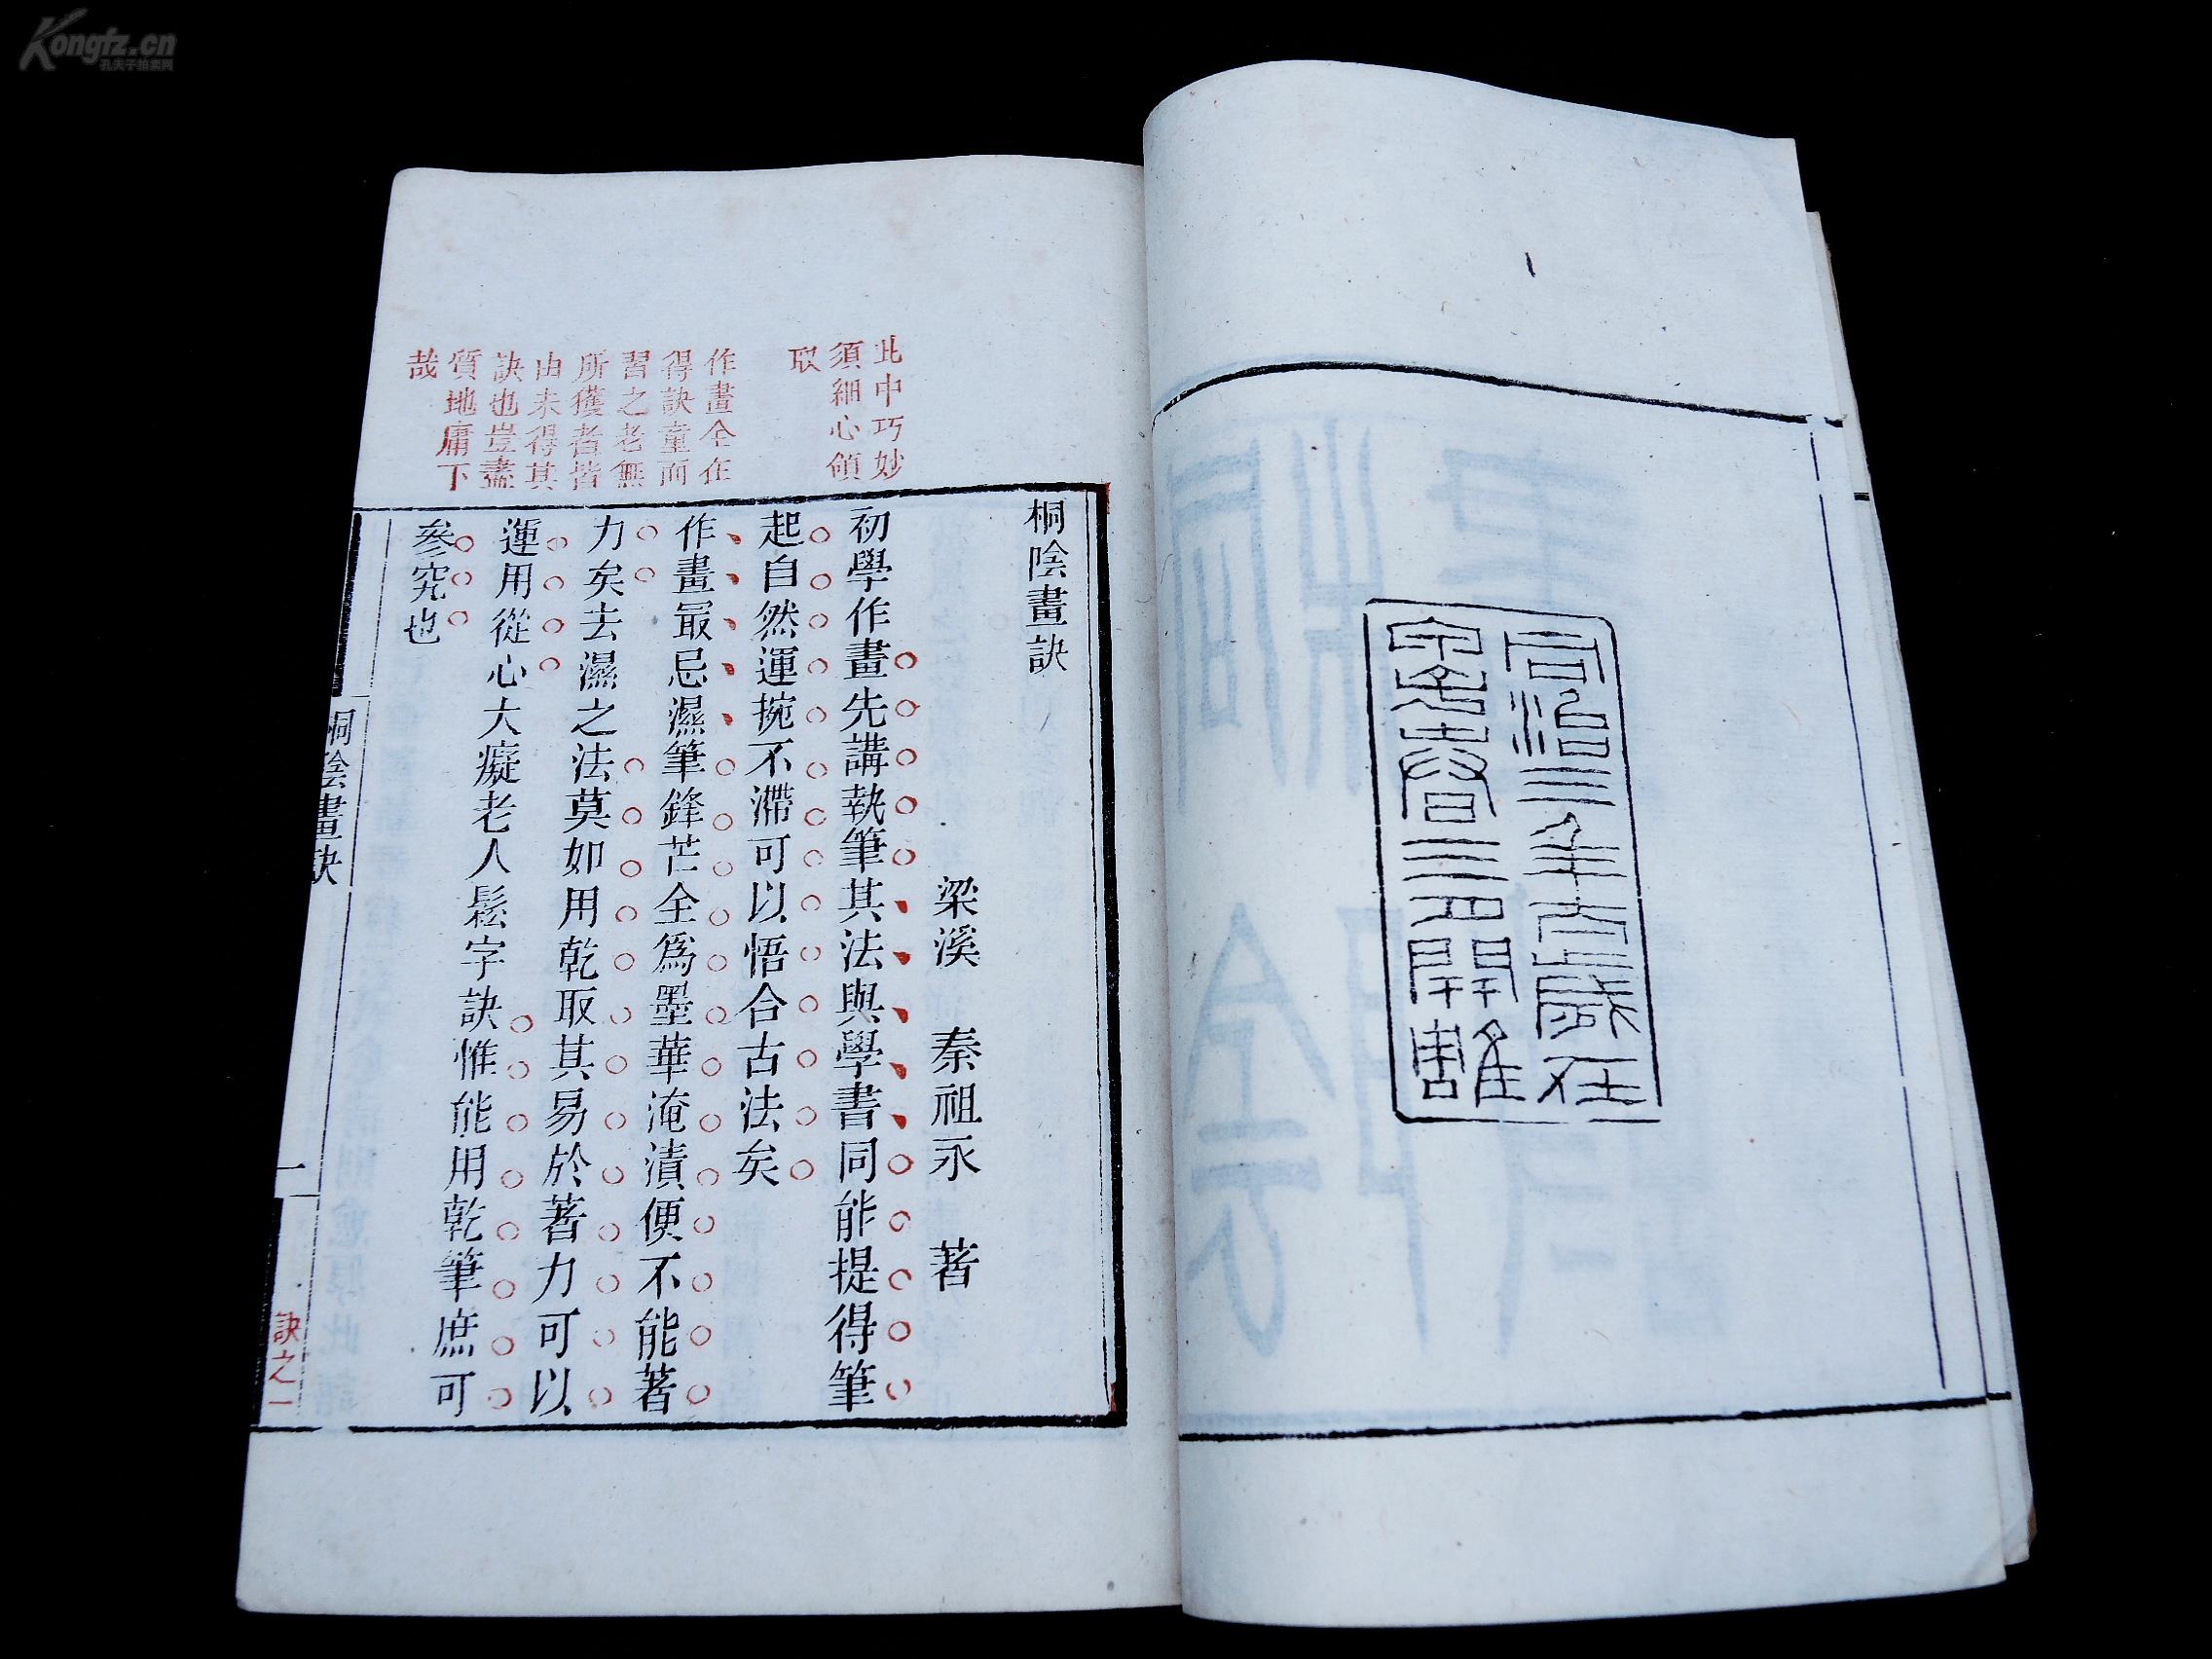 Kongfz.cn
孔夫子拍卖网
同治三年太歲在
甲子春三月開雕
桐陰畫訣
梁溪 秦祖永 著
初學作畫先講執筆其法與學書同能提得筆
起自然運捥不滯可以悟合古法矣
作畫最忌濕筆鋒芒全爲墨華淹漬便不能著
力矣去濕之法莫如用乾取其易於著力可以
運用從心大癡老人鬆字訣惟能用乾筆庶可
參究也
此中巧妙
須細心領
取
作畫全在
得訣童而
習之老無
所獲者皆
由未得其
訣也豈盡
質地庸下
哉
桐陰畫訣
一
訣之一